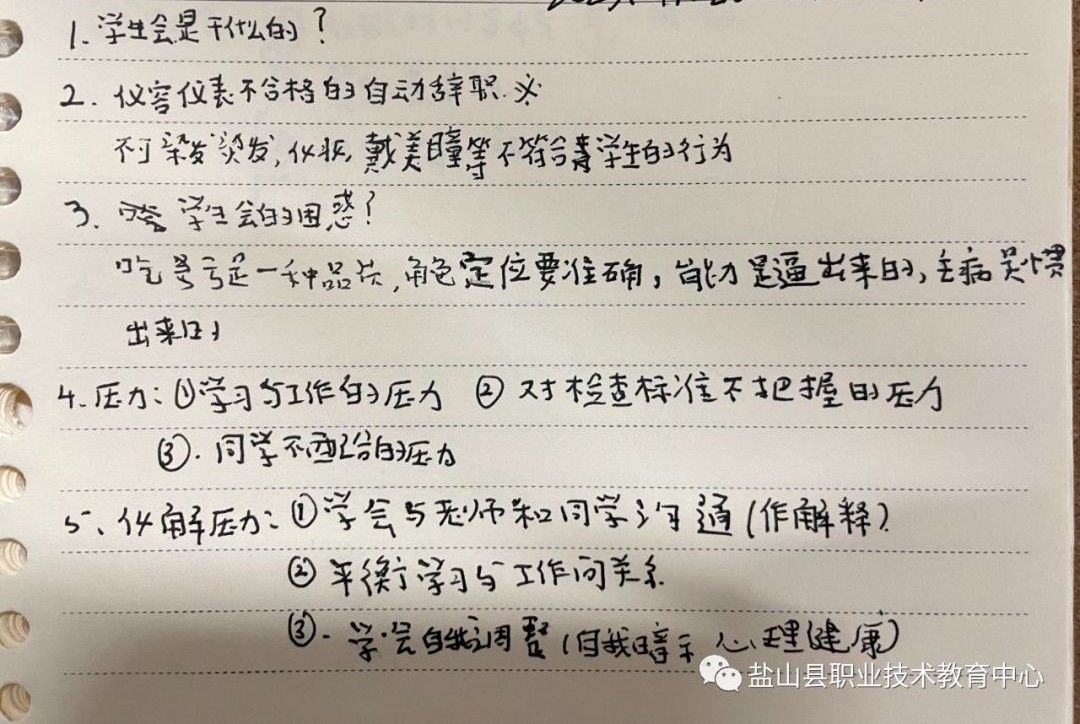 1. 学生会是干什么的？
2. 仪容仪表不合格的自动辞职.※
不可染发烫发,化妆,戴美瞳等不符合学生的行为
3. 学生会的困惑？
吃亏是一种品质,角色定位要准确，能力是逼出来的,毛病是惯
出来的
4.压力:①学习与工作的压力 ②对检查标准不把握的压力
③.同学不配合的压力
5、化解压力:①学会与老师和同学沟通(作解释)
②平衡学习与工作间关系
③.学会自我调整(自我暗示 心理健康)
盐山县职业技术教育中心